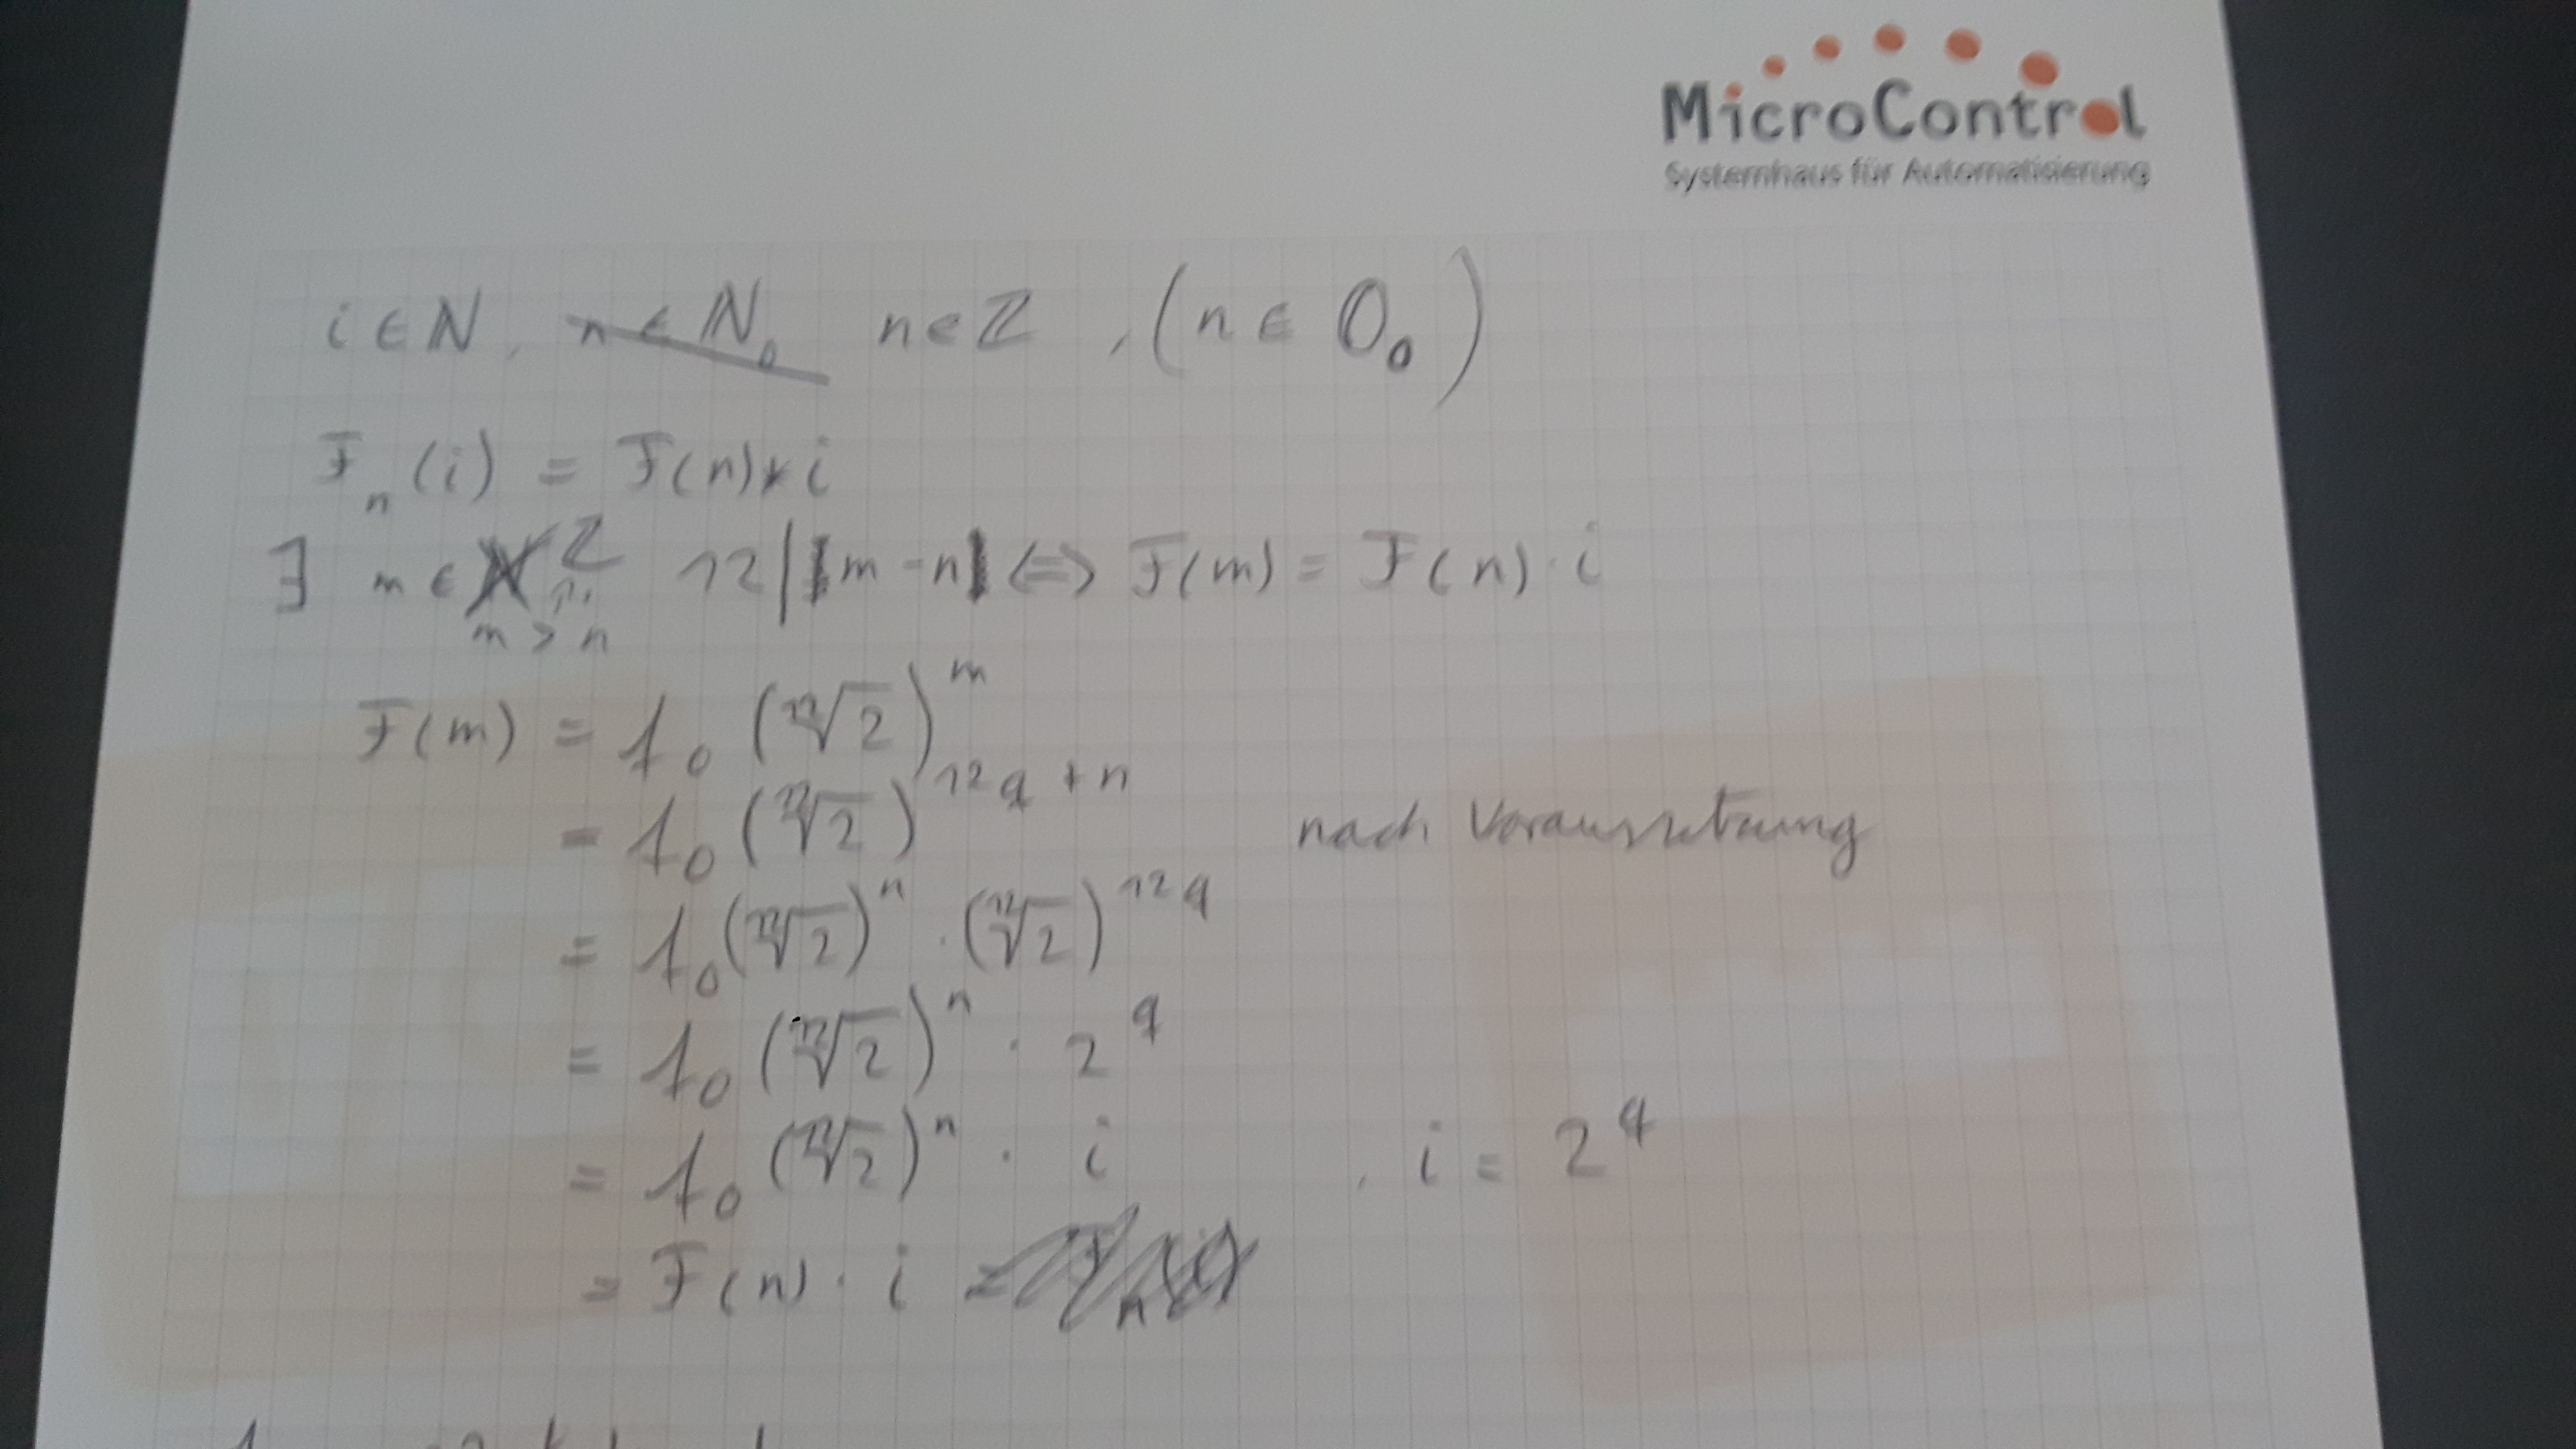 MicroControl
Systemhaus für Automatisierung
i ∈ ℕ, n ∈ ℕ₀ n ∈ ℤ , (n ∈ 𝕆₀)
Fₙ(i) = F(n) * i
∃ m ∈ ℤ 12 | m - n ⇔ F(m) = F(n) · i
m > n
F(m) = f₀ (¹²√2)^m
= f₀ (¹²√2)^12q + n nach Voraussetzung
= f₀ (¹²√2)^n · (¹²√2)^12q
= f₀ (¹²√2)^n · 2^q
= f₀ (¹²√2)^n · i , i = 2^q
= F(n) · i